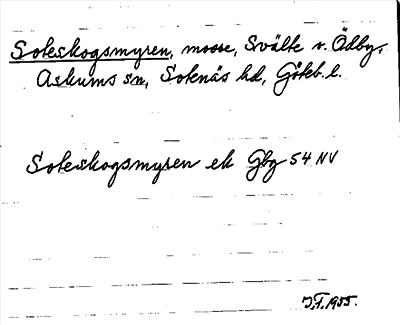 Soteskogsmyren, mosse, Svälte v. Ödby,
Askums sn, Sotenäs hd, Göteb. l.
Soteskogsmyren ek Gbg 54 NV
J.F. 1955.